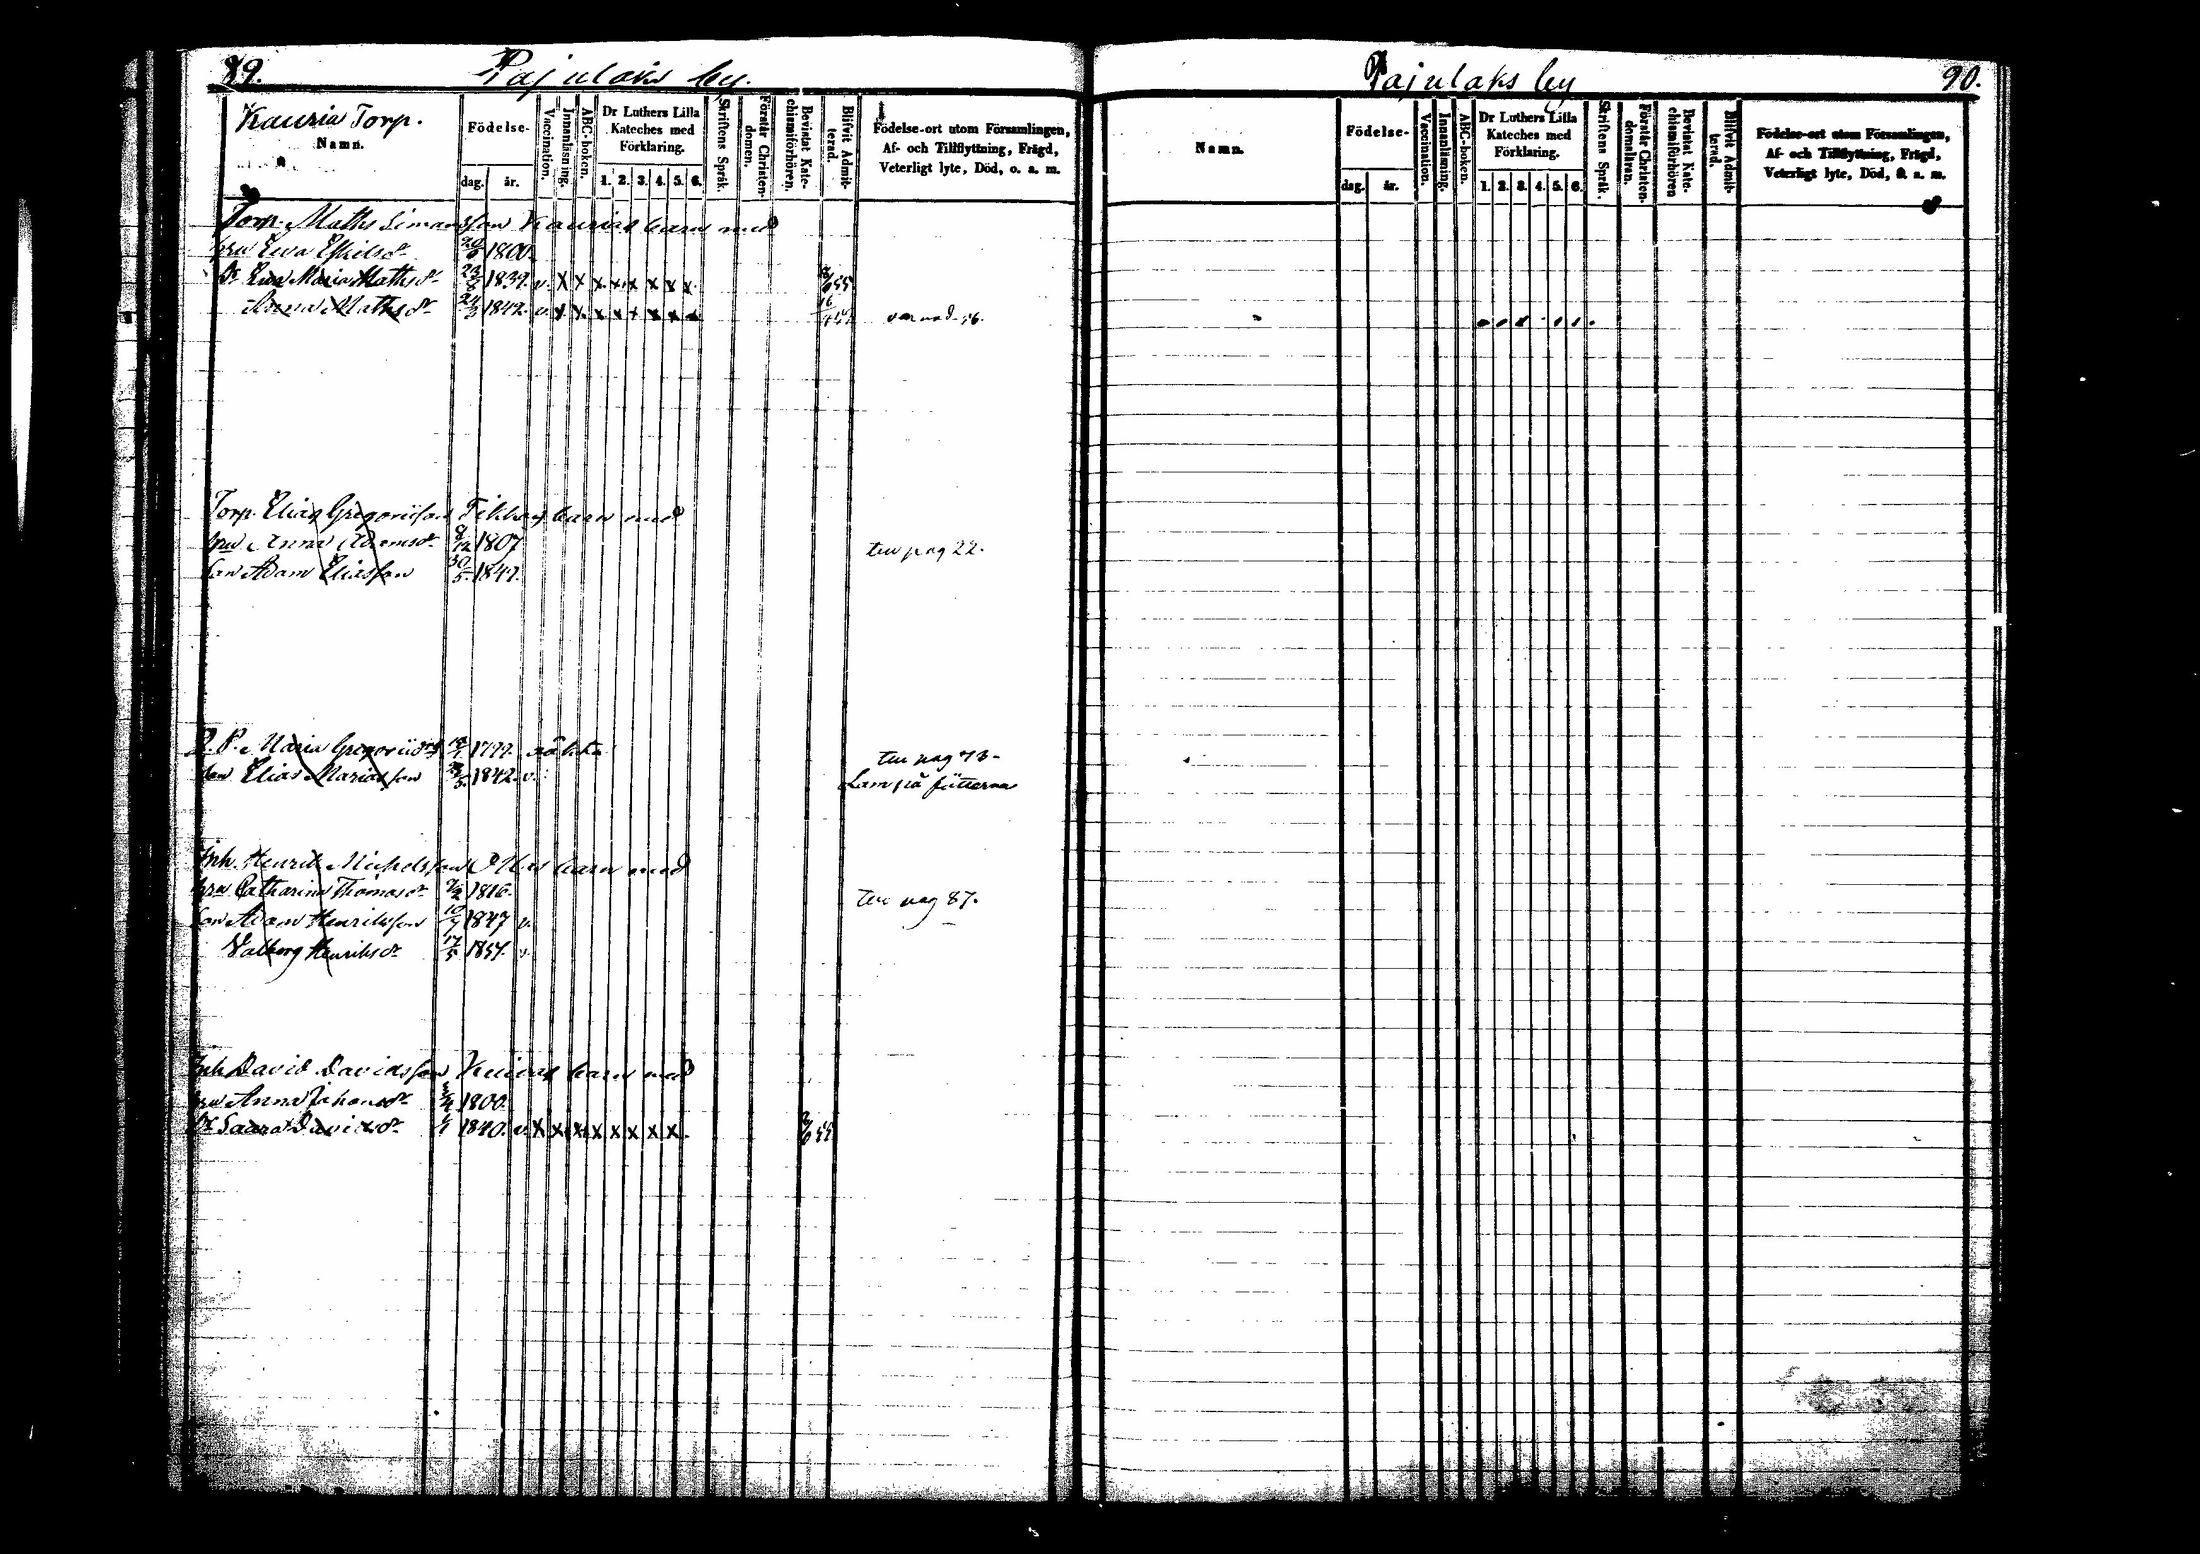 89.
Pajulaks by.
Kauria Torp.
Namn.
Födelse-
dag.
år.
Vaccination.
Innanläsning.
ABC-boken.
Dr Luthers Lilla
Kateches med
Förklaring.
1. 2. 3. 4. 5. 6.
Skriftens Språk.
Förstår Christen-
domen.
Bevistat Kate-
chismiförhören.
Blifvit Admit-
terad.
Födelse-ort utom Församlingen,
Af- och Tillflyttning, Frägd,
Veterligt lyte, Död, o. a. m.
Torp. Maths Simonsson Kaurias barn med
hru Ewa Eskilsdr 1800.
Dr Ewa Maria Mathsdr 23 1839. v. x x x x x x x x
Anna Mathsdr 24/3 1842. v. x x x x x x x x 16
Torp. Elias Gregoriisson Tikkas barn med
hru Anna Adamsdr 1807
ten pag 22.
son Adam Eliasson 30/5 1847.
D. P. Maria Gregoriidr 1797.
ten pag 73-
son Elias Mariasson 1842. v.
Lam på fötterna
Inh. Henrik Michelsson barn med
hru Catharina Thomasdr 1816.
ten pag 87.
son Adam Henriksson 10/7 1847 v.
Valborg Henriksdr 17/5 1854. v.
Inh David Davidsson barn med
hru Anna Johansdr 1800.
Dr Saara Davidsdr 1840. v x x x x x x x x.
Pajulaks by
90.
Namn.
Födelse-
dag.
år.
Vaccination.
Innanläsning.
ABC-boken.
Dr Luthers Lilla
Kateches med
Förklaring.
1. 2. 3. 4. 5. 6.
Skriftens Språk.
Förstår Christen-
domsläran.
Bevistat Kate-
chismiförhören
Blifvit Admit-
terad.
Födelse-ort utom Församlingen,
Af- och Tillflyttning, Frägd,
Veterligt lyte, Död, o. a. m.